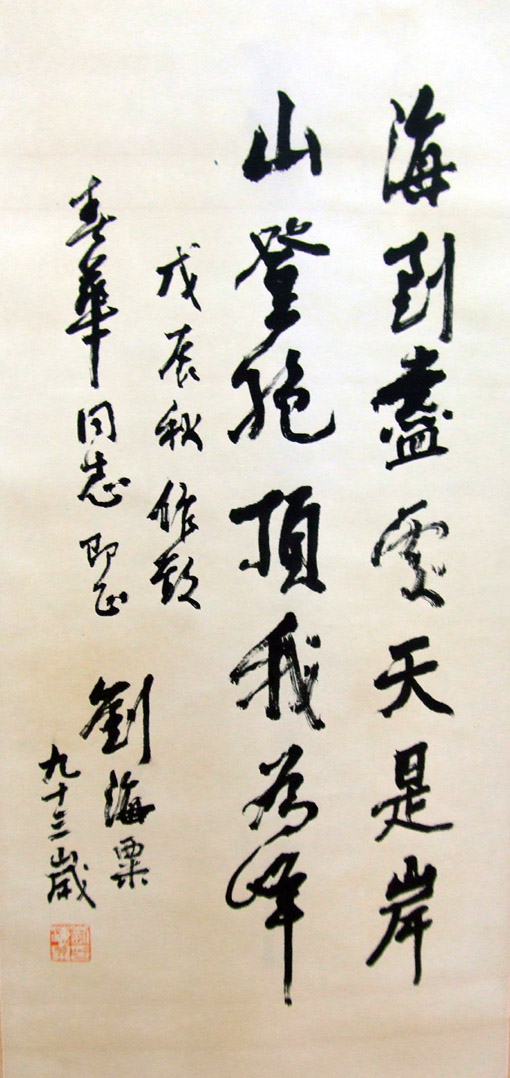 海到盡處天是岸
山登絶頂我為峰
戊辰秋作款
春華同志即正
劉海粟
九十三歲